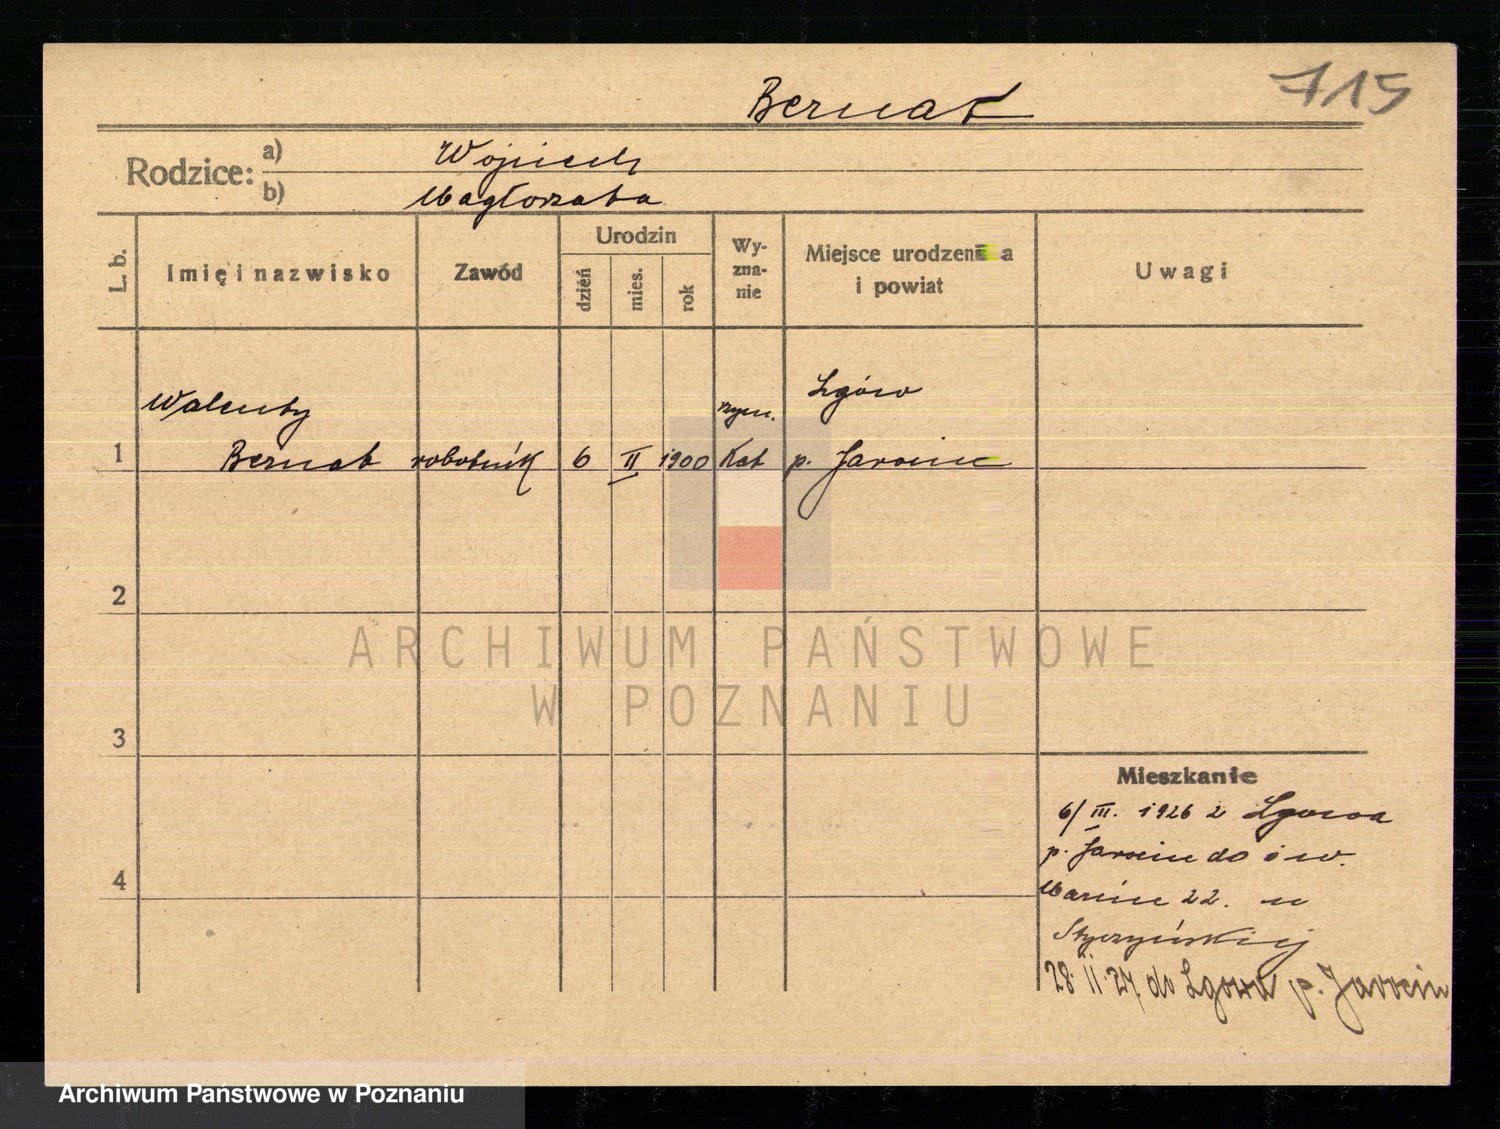 Bernat 715
Rodzice: a) Wojciech
b) Małgorzata
L. b. Imię i nazwisko Zawód Urodzin dzień mies. rok Wyznanie Miejsce urodzenia i powiat Uwagi
Walenty rzym. Lgów
1 Bernat robotnik 6 II 1900 Kat p. Jarocin
2
ARCHIWUM PAŃSTWOWE
W POZNANIU
3
Mieszkanie
6/III. 1926 z Lgowa
p. Jarocin do św.
4
Marcin 22. u
28. II. 27. do Lgowa p. Jarocin
Archiwum Państwowe w Poznaniu